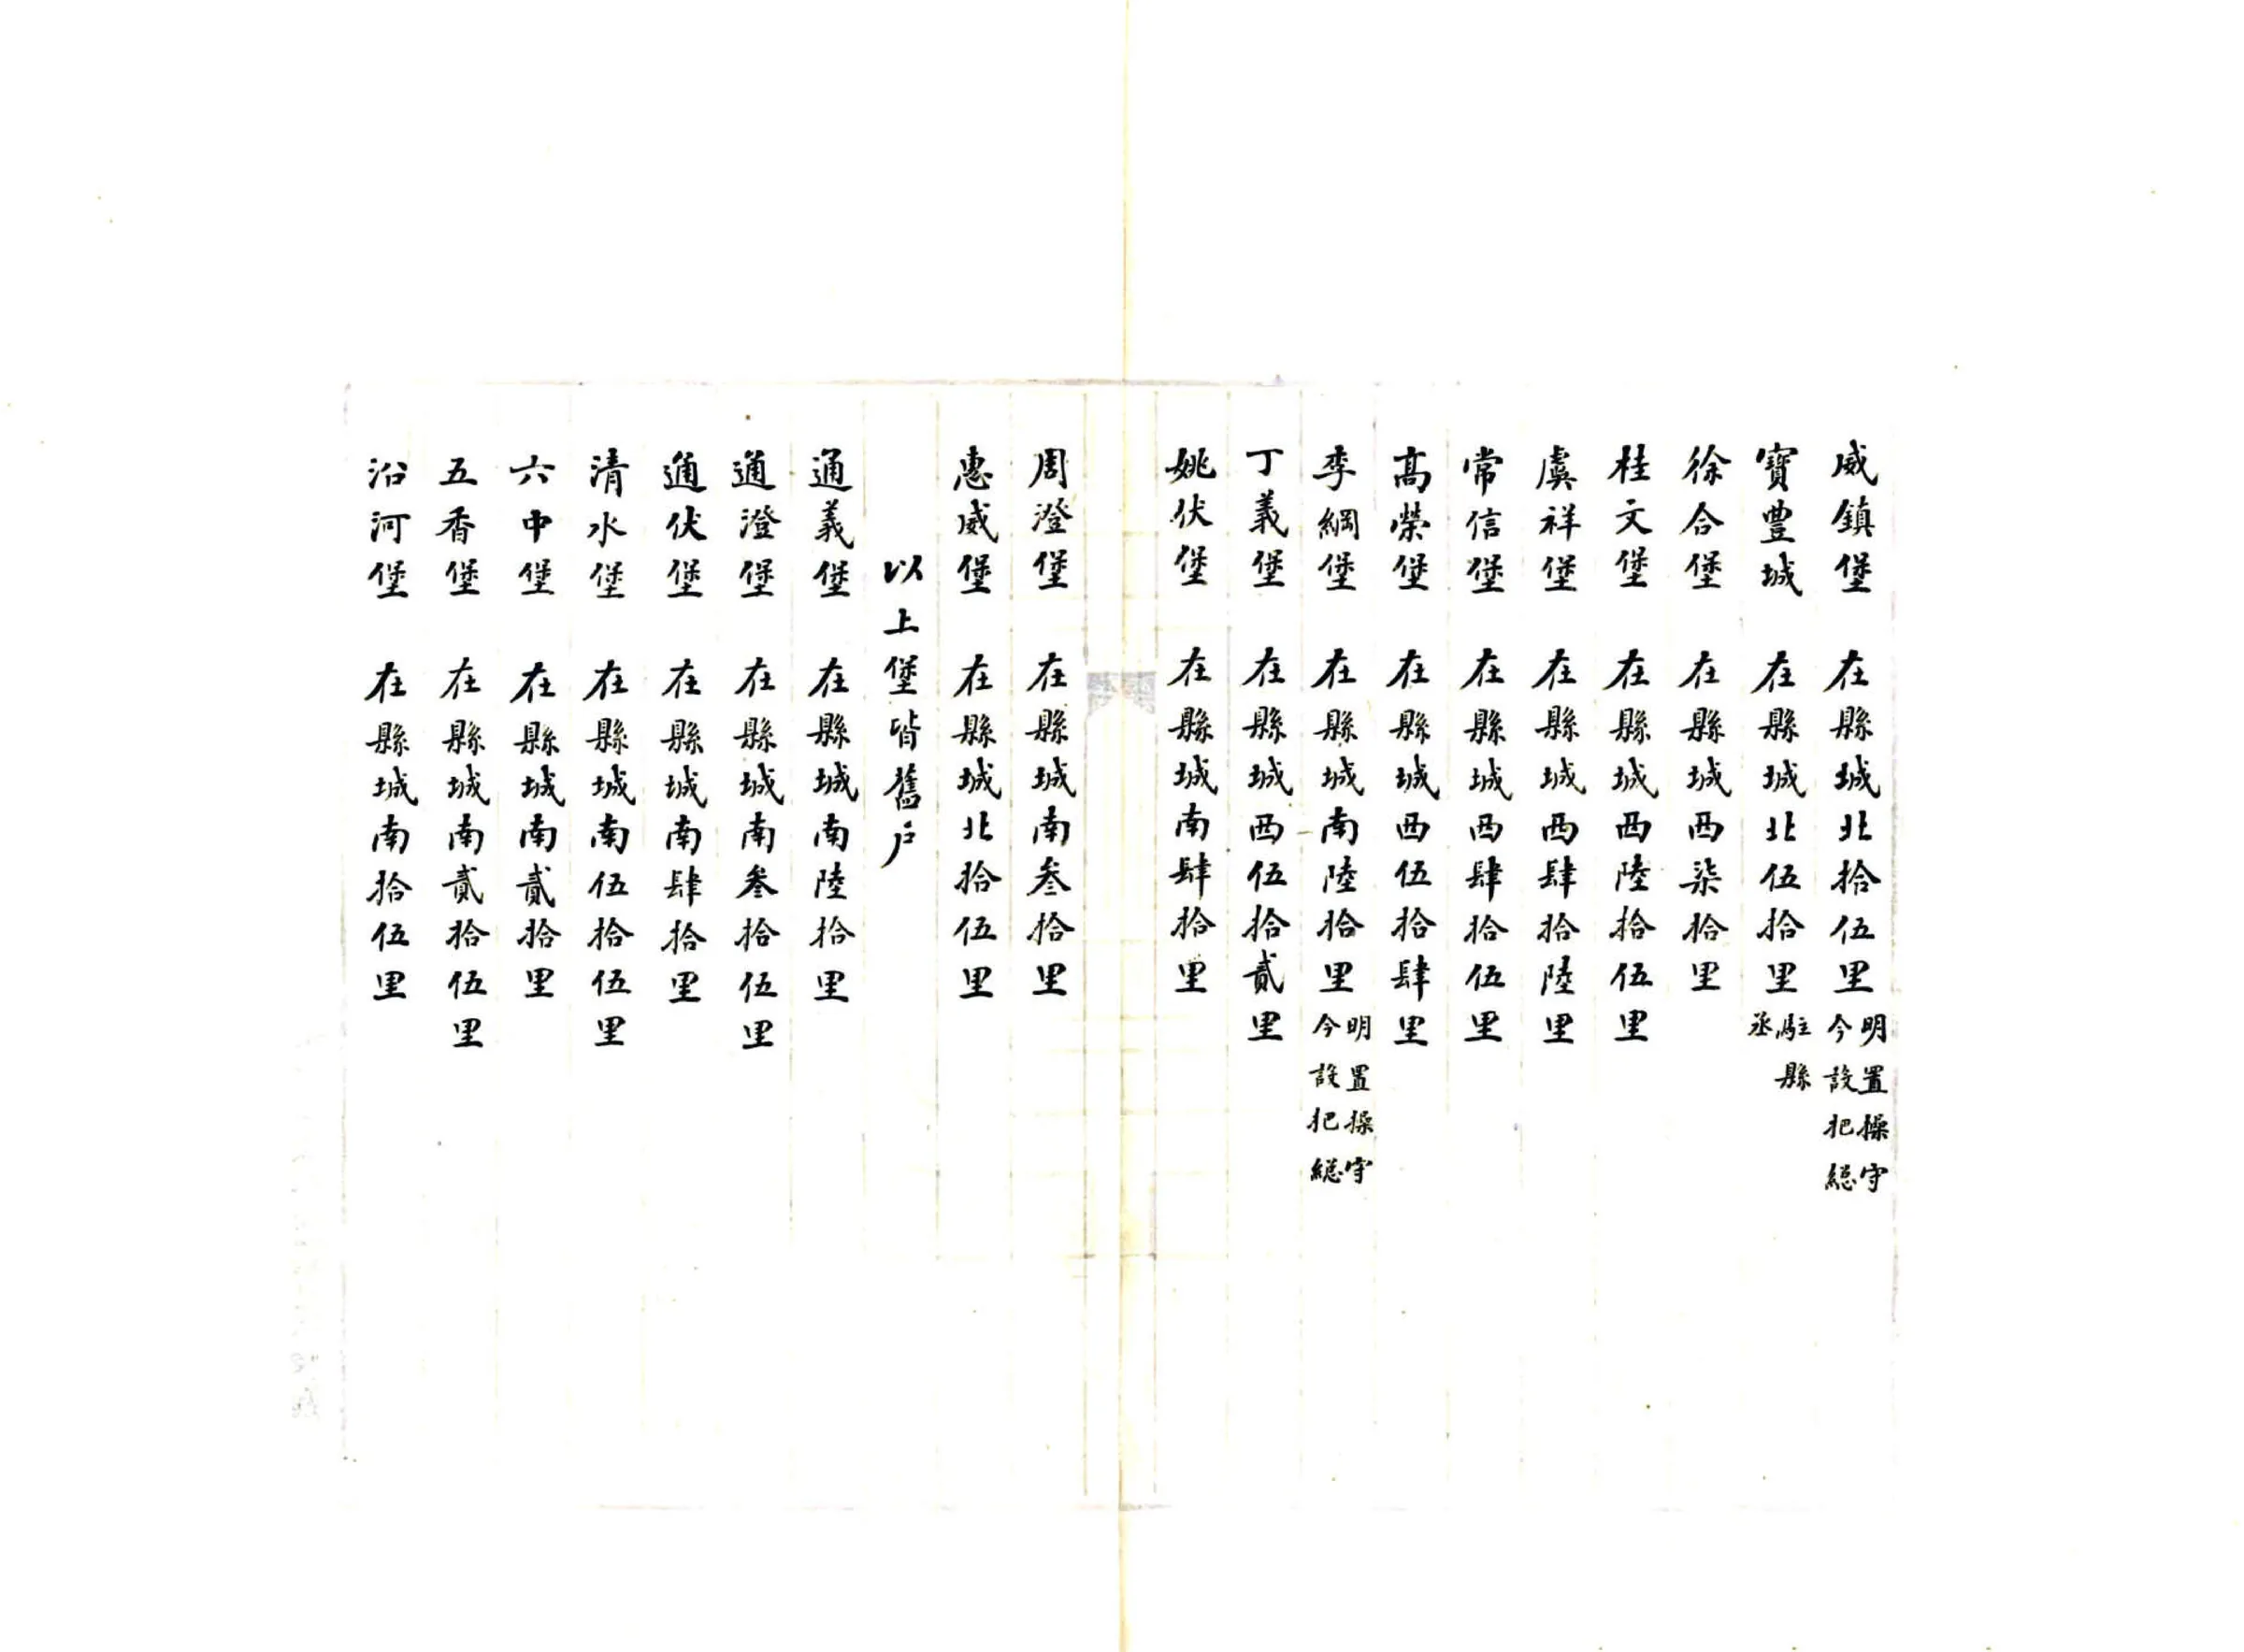 威鎮堡　在縣城北拾伍里明置操守今設把總
寶豐城　在縣城北伍拾里駐縣丞
徐合堡　在縣城西柒拾里
桂文堡　在縣城西陸拾伍里
虞祥堡　在縣城西肆拾陸里
常信堡　在縣城西肆拾伍里
高榮堡　在縣城西伍拾肆里
李綱堡　在縣城南陸拾里明置操守今設把總
丁義堡　在縣城西伍拾貳里
姚伏堡　在縣城南肆拾里
周澄堡　在縣城南叁拾里
惠威堡　在縣城北拾伍里
以上堡皆舊户
通義堡　在縣城南陸拾里
通澄堡　在縣城南叁拾伍里
通伏堡　在縣城南肆拾里
清水堡　在縣城南伍拾伍里
六中堡　在縣城南貳拾里
五香堡　在縣城南貳拾伍里
沿河堡　在縣城南拾伍里